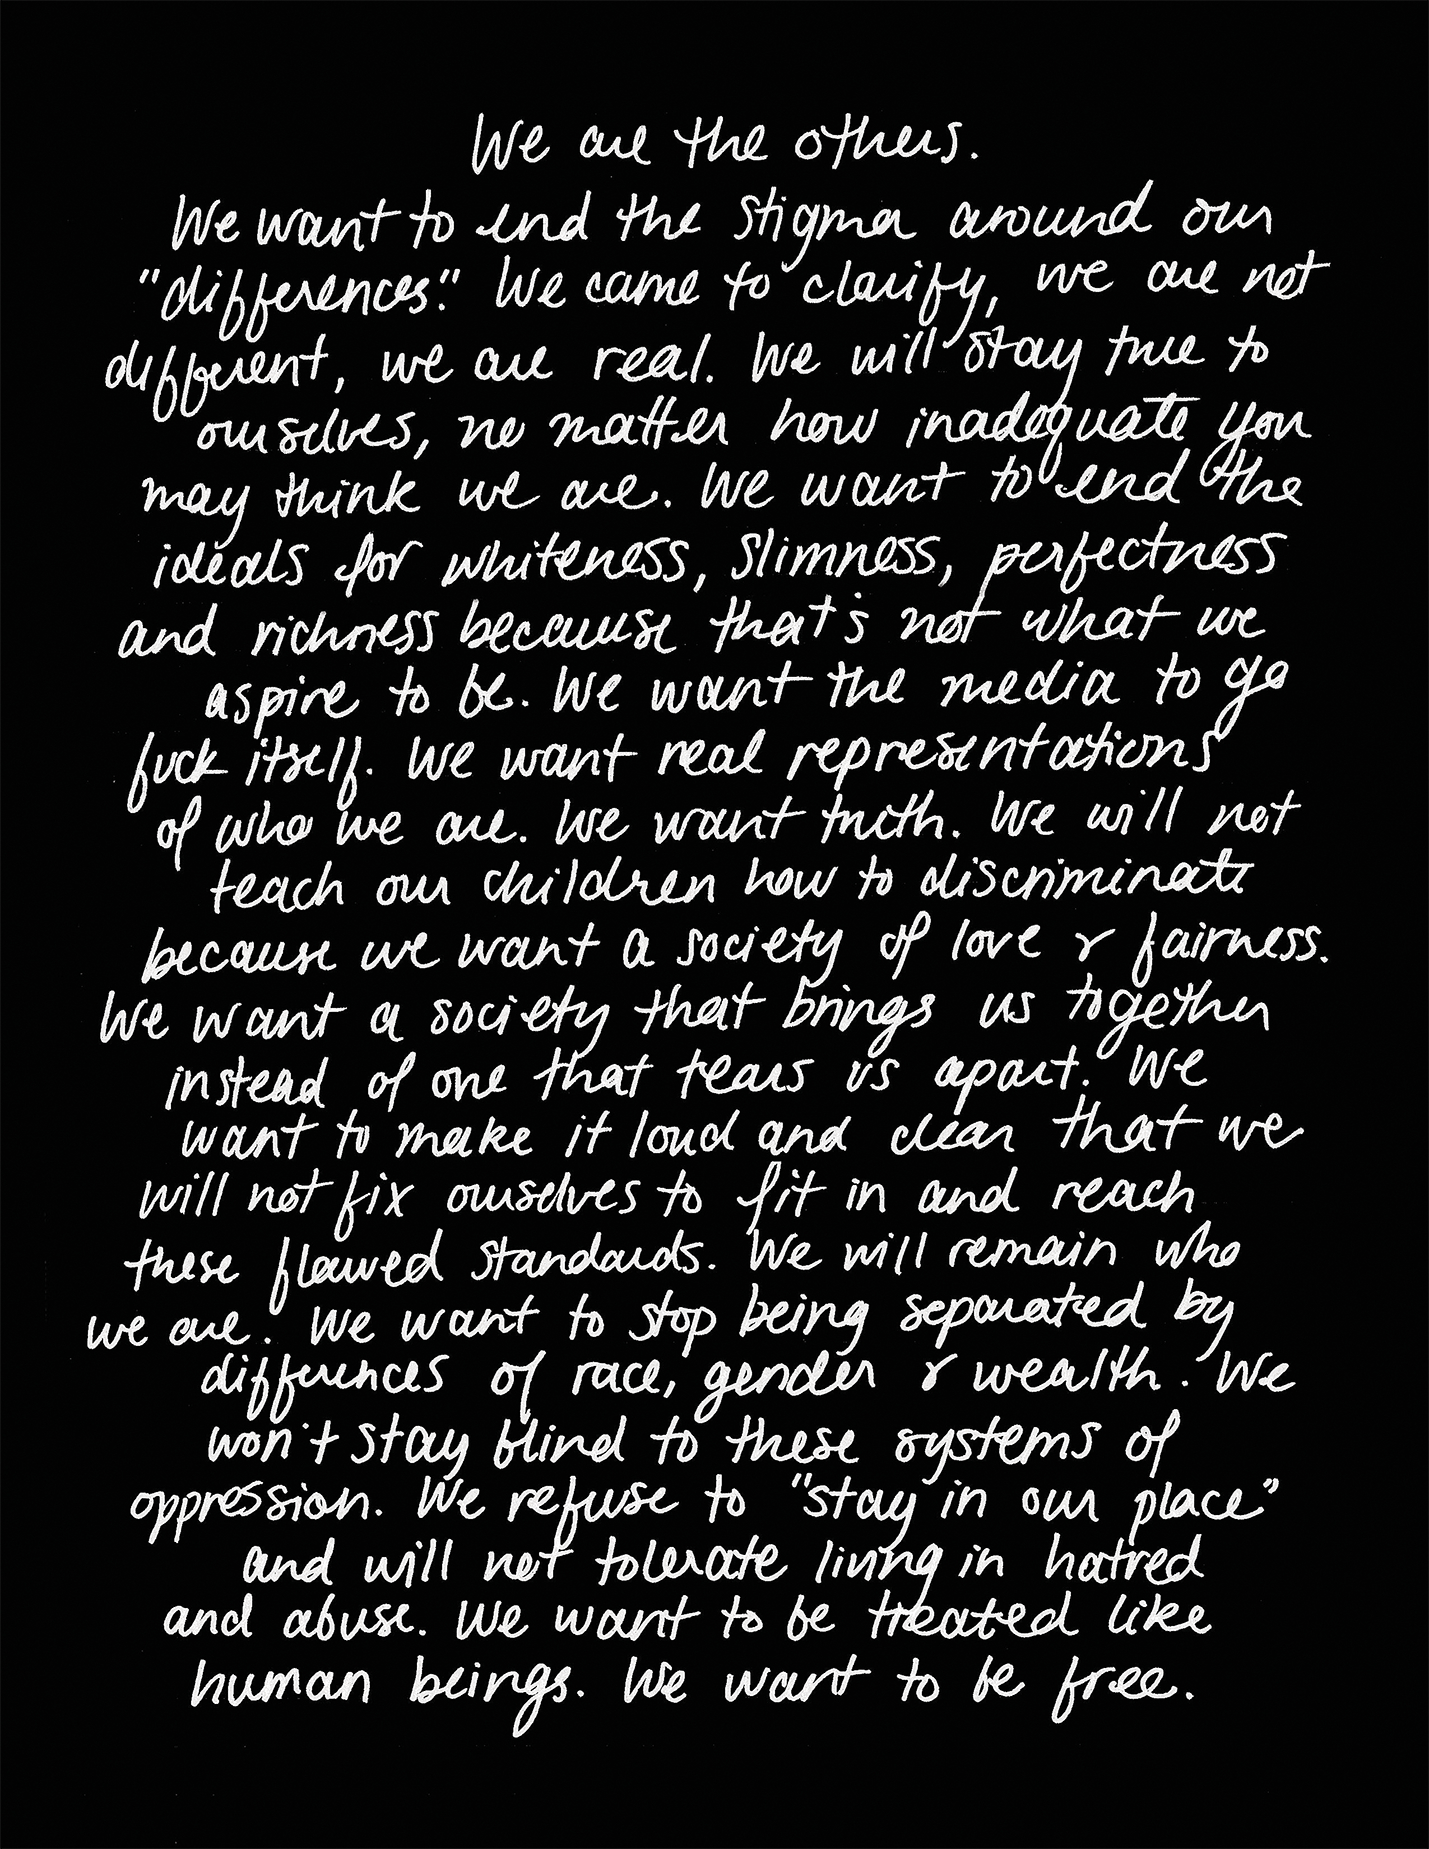 We are the others.
We want to end the stigma around our
"differences." We came to clarify, we are not
different, we are real. We will stay true to
ourselves, no matter how inadequate you
may think we are. We want to end the
ideals for whiteness, slimness, perfectness
and richness because that's not what we
aspire to be. We want the media to go
fuck itself. We want real representations
of who we are. We want truth. We will not
teach our children how to discriminate
because we want a society of love & fairness.
We want a society that brings us together
instead of one that tears us apart. We
want to make it loud and clear that we
will not fix ourselves to fit in and reach
these flawed standards. We will remain who
we are. We want to stop being separated by
differences of race, gender & wealth. We
won't stay blind to these systems of
oppression. We refuse to "stay in our place"
and will not tolerate living in hatred
and abuse. We want to be treated like
human beings. We want to be free.